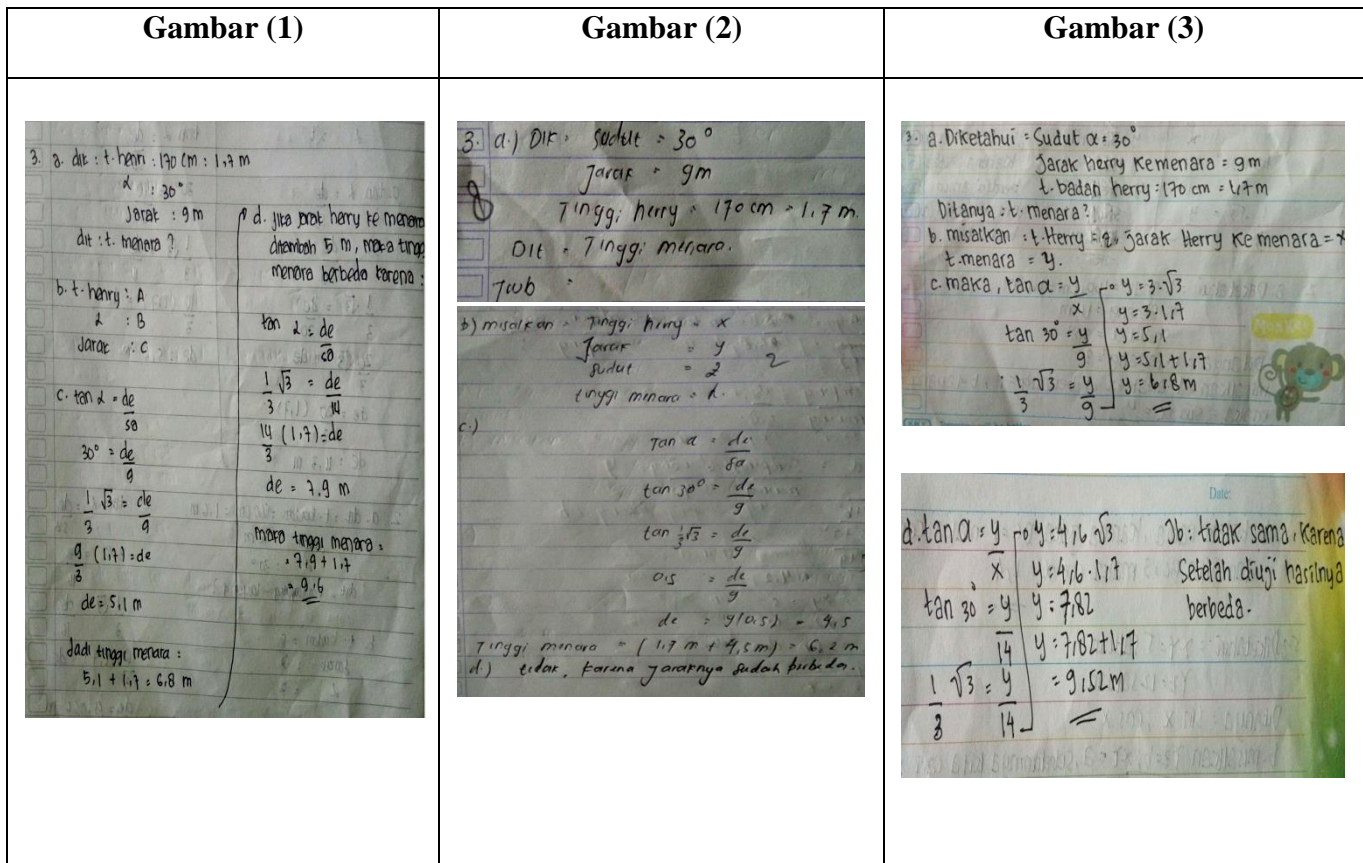 Gambar (1)
Gambar (2)
Gambar (3)
3. a. dit : t. henri : 170 cm : 1,7 m
α : 30°
Jarak : 9 m
dit : t. menara ?
b. t. henry : A
α : B
Jarak : C
c. tan α = de
sa
30° = de
9
1 √3 = de
3 9
9 (1,7) = de
3
de = 5,1 m
Jadi tinggi menara :
5,1 + 1,7 = 6,8 m
d. jika jarak henry ke menara
ditambah 5 m, maka tingg
menara berbeda karena :
tan α = de
sa
1 √3 = de
3 14
14 (1,7) = de
3
de = 7,9 m
maka tinggi menara :
= 7,9 + 1,7
= 9,6
3. a.) Dik = sudut = 30°
Jarak = 9m
Tinggi herry = 170 cm = 1,7 m.
Dit = Tinggi menara.
Jwb =
8
b) misalkan = Tinggi herry = x
Jarak = y
sudut = z
tinggi menara = d.
2
c.)
Tan a = de
sa
tan 30° = de
9
tan 1/3 √3 = de
9
0,5 = de
9
de = 9(0,5) = 4,5
Tinggi menara = (1,7 m + 4,5 m) = 6,2 m
d.) tidak, karena jaraknya sudah berbeda.
3. a. Diketahui = Sudut α = 30°
Jarak herry kemenara = 9m
t. badan herry = 170 cm = 1,7 m
Ditanya : t. menara ?
b. misalkan : t. Herry = Jarak Herry ke menara = x
t. menara = y.
c. maka, tan α = y
x
tan 30° = y
9
1 √3 = y
3 9
y = 3.√3
y = 3.1,7
y = 5,1
y = 5,1 + 1,7
y = 6,8 m
MONKEY
Date:
d. tan α = y
x
tan 30° = y
14
1 √3 = y
3 14
y = 4,6 √3
y = 4,6 . 1,7
y = 7,82
y = 7,82 + 1,7
= 9,52 m
Jb : tidak sama, karena
setelah diuji hasilnya
berbeda.